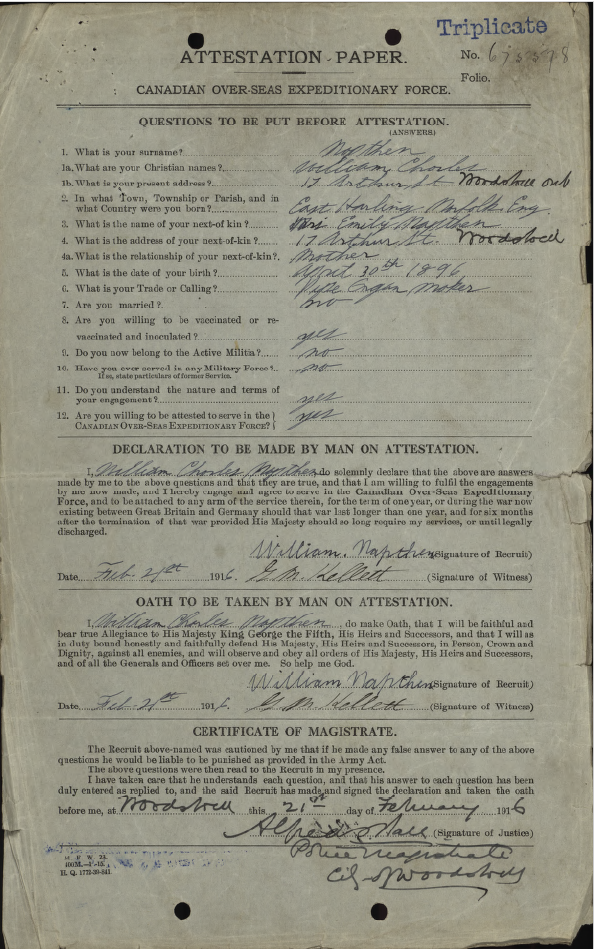 Triplicate
ATTESTATION PAPER.
No.
Folio.
CANADIAN OVER-SEAS EXPEDITIONARY FORCE.
QUESTIONS TO BE PUT BEFORE ATTESTATION.
(ANSWERS)
1. What is your surname? Napthen
1a. What are your Christian names? William Charles
1b. What is your present address? 17 Arthur St Woodstock Ont
2. In what Town, Township or Parish, and in
what Country were you born? East Harling Norfolk Eng.
3. What is the name of your next-of kin? Mrs Emily Napthen
4. What is the address of your next-of-kin? 17 Arthur St. Woodstock
4a. What is the relationship of your next-of-kin? Mother
5. What is the date of your birth? April 30th 1896
6. What is your Trade or Calling? Pipe Organ Maker
7. Are you married? no
8. Are you willing to be vaccinated or re-
vaccinated and inoculated? yes
9. Do you now belong to the Active Militia? no
10. Have you ever served in any Military Force? no
If so, state particulars of former Service.
11. Do you understand the nature and terms of
your engagement? yes
12. Are you willing to be attested to serve in the
CANADIAN OVER-SEAS EXPEDITIONARY FORCE? yes
DECLARATION TO BE MADE BY MAN ON ATTESTATION.
I, William Charles Napthen, do solemnly declare that the above are answers
made by me to the above questions and that they are true, and that I am willing to fulfil the engagements
by me now made, and I hereby engage and agree to serve in the Canadian Over-Seas Expeditionary
Force, and to be attached to any arm of the service therein, for the term of one year, or during the war now
existing between Great Britain and Germany should that war last longer than one year, and for six months
after the termination of that war provided His Majesty should so long require my services, or until legally
discharged.
William. Napthen (Signature of Recruit)
Date Feb. 1916. G. M. Kellett (Signature of Witness)
OATH TO BE TAKEN BY MAN ON ATTESTATION.
I, William Charles Napthen, do make Oath, that I will be faithful and
bear true Allegiance to His Majesty King George the Fifth, His Heirs and Successors, and that I will as
in duty bound honestly and faithfully defend His Majesty, His Heirs and Successors, in Person, Crown and
Dignity, against all enemies, and will observe and obey all orders of His Majesty, His Heirs and Successors,
and of all the Generals and Officers set over me. So help me God.
William Napthen (Signature of Recruit)
Date Feb. 1916. G. M. Kellett (Signature of Witness)
CERTIFICATE OF MAGISTRATE.
The Recruit above-named was cautioned by me that if he made any false answer to any of the above
questions he would be liable to be punished as provided in the Army Act.
The above questions were then read to the Recruit in my presence.
I have taken care that he understands each question, and that his answer to each question has been
duly entered as replied to, and the said Recruit has made and signed the declaration and taken the oath
before me, at Woodstock this 21st day of February 1916
Alfred S Ball (Signature of Justice)
Police Magistrate
City of Woodstock
M. F. W. 23.
H. Q. 1772-39-841.